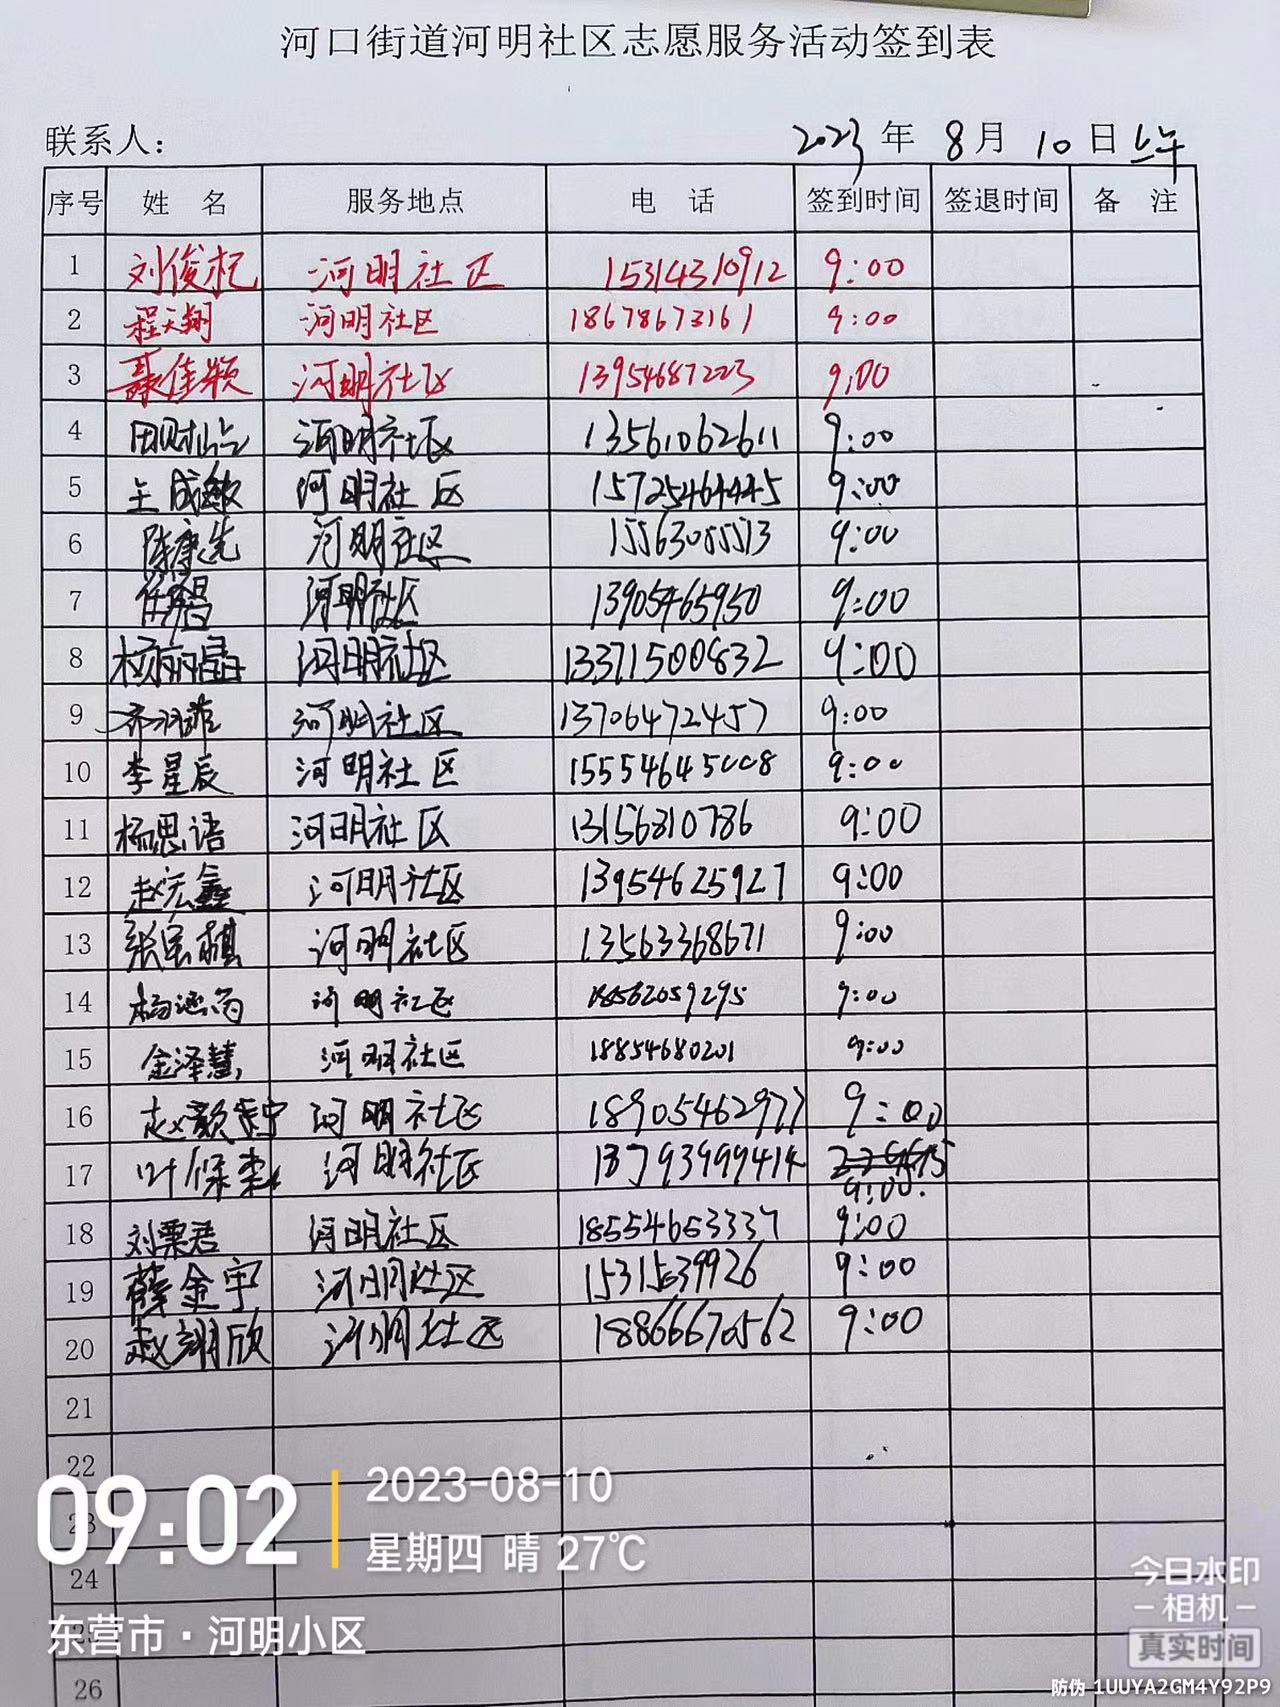 河口街道河明社区志愿服务活动签到表
联系人： 2023 年 8月 10日 上午
序号 姓 名 服务地点 电 话 签到时间 签退时间 备 注
1 刘俊杞 河明社区 15314310912 9:00
2 程天翔 河明社区 18678673161 9:00
3 聂佳颖 河明社区 13954687223 9:00
4 河明社区 13561062611 9:00
5 王成敏 河明社区 15725464445 9:00
6 陈康先 河明社区 15563055513 9:00
7 河明社区 13905465950 9:00
8 杨丽晶 河明社区 13371500832 9:00
9 齐 河明社区 13706472457 9:00
10 李星辰 河明社区 15554645008 9:00
11 杨思语 河明社区 13156310786 9:00
12 赵宏鑫 河明社区 13954625927 9:00
13 张宝棋 河明社区 13563368671 9:00
14 杨 河明社区 18562059295 9:00
15 金泽慧 河明社区 18854680201 9:00
16 赵颜宁 河明社区 18905462977 9:00
17 叶保森 河明社区 13793999414
9:00
18 刘栗君 河明社区 18554653337 9:00
19 薛金宇 河明社区 15315039926 9:00
20 赵翊欣 河明社区 18866670562 9:00
21
22
23
24
25
26
09:02
2023-08-10
星期四 晴 27℃
东营市·河明小区
今日水印
-相机-
真实时间
防伪 1UUYA2GM4Y92P9